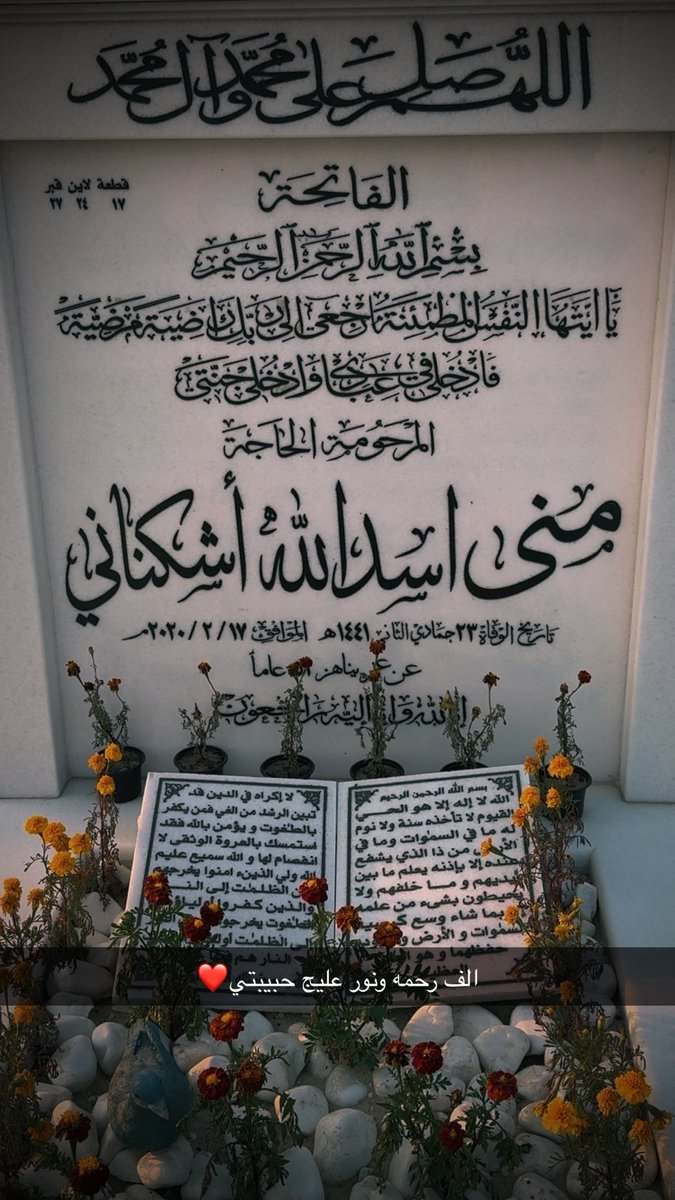 اللهم صل على محمد وآل محمد
قطعة لاين قبر
١٧ ٢٤ ٢٧
الفاتحة
بسم الله الرحمن الرحيم
يا ايتها النفس المطمئنة ارجعي الى ربك راضية مرضية
فادخلي في عبادي وادخلي جنتي
المرحومة الحاجة
منى اسدالله أشكناني
تاريخ الوفاة ٢٣ جمادي الثاني ١٤٤١هـ الموافق ٢٠٢٠/٢/١٧م
عن عمر يناهز عاماً
بسم الله الرحمن الرحيم
الله لا إله إلا هو الحي
القيوم لا تأخذه سنة ولا نوم
له ما في السموات وما في
من ذا الذي يشفع
عنده إلا بإذنه يعلم ما بين
أيديهم و ما خلفهم ولا
يحيطون بشيء من علمه
بما شاء وسع
والأرض ولا
حفظهما و هو
لا إكراه في الدين قد
تبين الرشد من الغي فمن يكفر
بالطغوت و يؤمن بالله فقد
استمسك بالعروة الوثقى لا
انفصام لها و الله سميع عليم
الله ولي الذين ءامنوا يخرجهم
من الظلمات إلى
والذين كفروا
الطغوت يخرجونهم
إلى الظلمات
النار هم
الف رحمه ونور عليج حبيبتي❤️